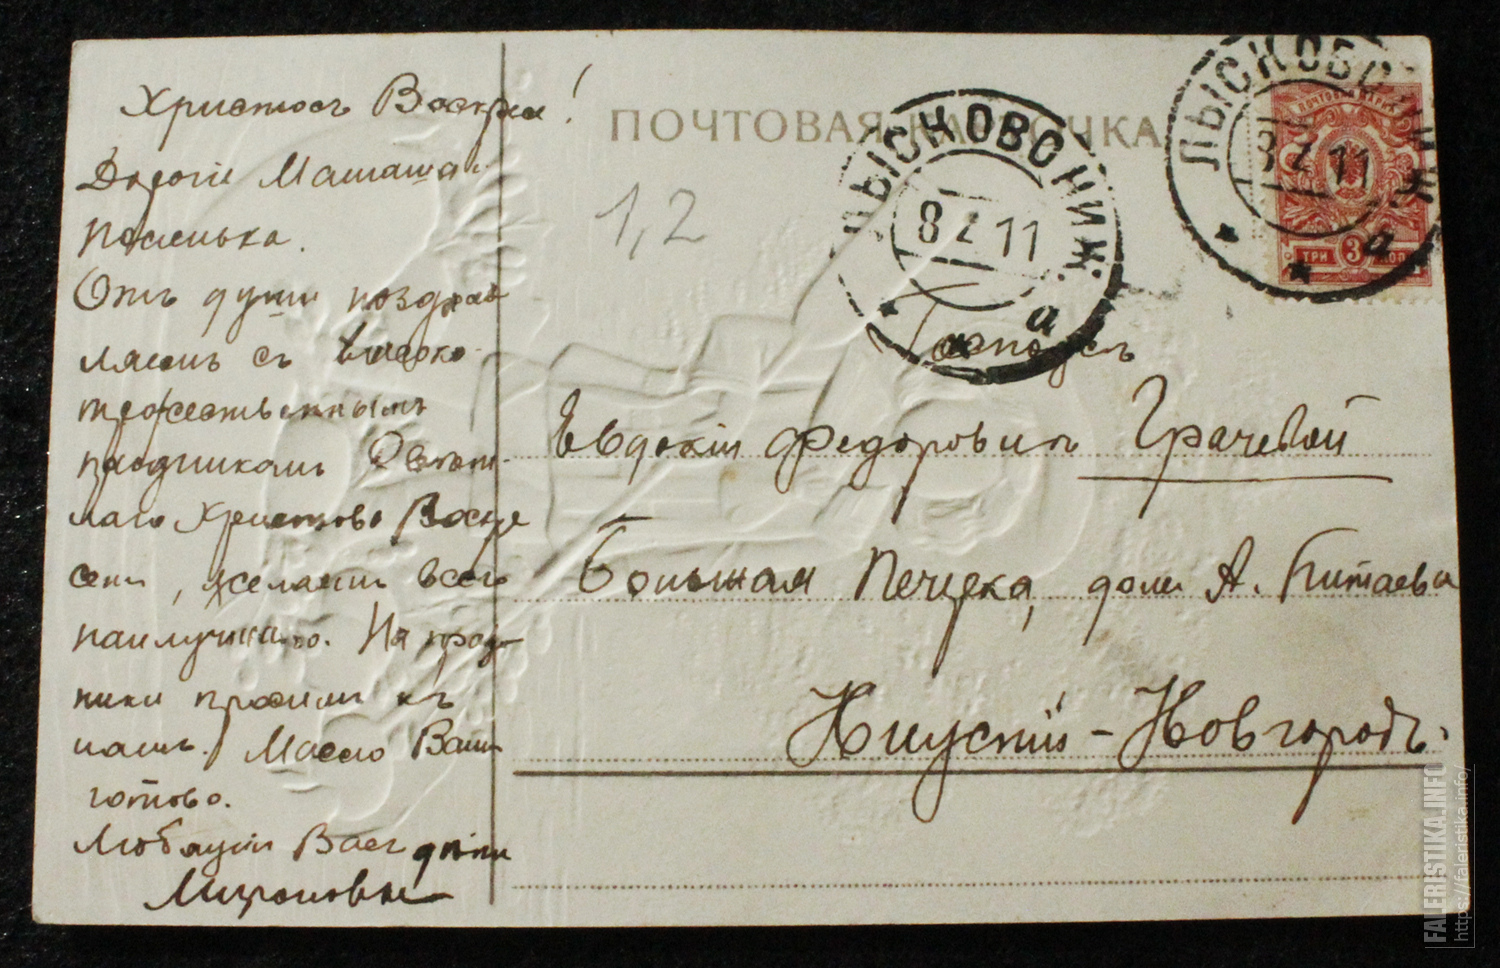 Христосъ Воскресе!
Дорогiе Мамаша и
Поленька.
Отъ души поздрав
ляемъ съ высоко
торжественнымъ
праздникомъ Светт-
лаго Христова Воскре
сенiя, желаемъ всего
наилучшаго. На празд
ники просимъ къ
намъ. Масло Вамъ
готово.
Любящiе Васъ дѣти
Мироновы
ПОЧТОВАЯ КАРТОЧКА
1,2
ЛЫСКОВО НИЖ.
8 4 11
а
ЛЫСКОВО НИЖ.
8 4 11
а
ПОЧТОВАЯ МАРКА
ТРИ 3 КОП
Госпожѣ
Евдокiи Федоровнѣ Грачевой
Большая Печерка, домъ А. Китаева
Нижнiй-Новгородъ.
FALERISTIKA.INFO
https://faleristika.info/